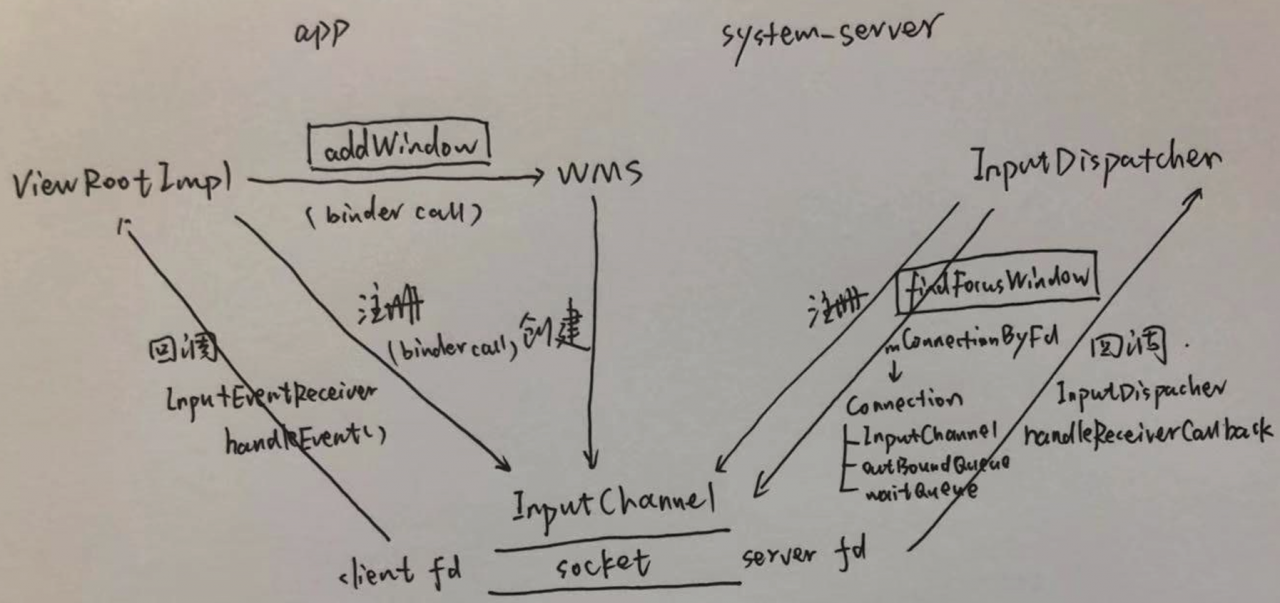 app
system-server
addWindow
ViewRootImpl
WMS
InputDispatcher
(binder call)
注册
(binder call)
创建
注册
findFocusWindow
mConnectionByFd
Connection
InputChannel
outBoundQueue
waitQueue
回调
InputEventReceiver
handleEvent()
回调
InputDispacher
handleReceiverCallback
InputChannel
client fd
socket
server fd